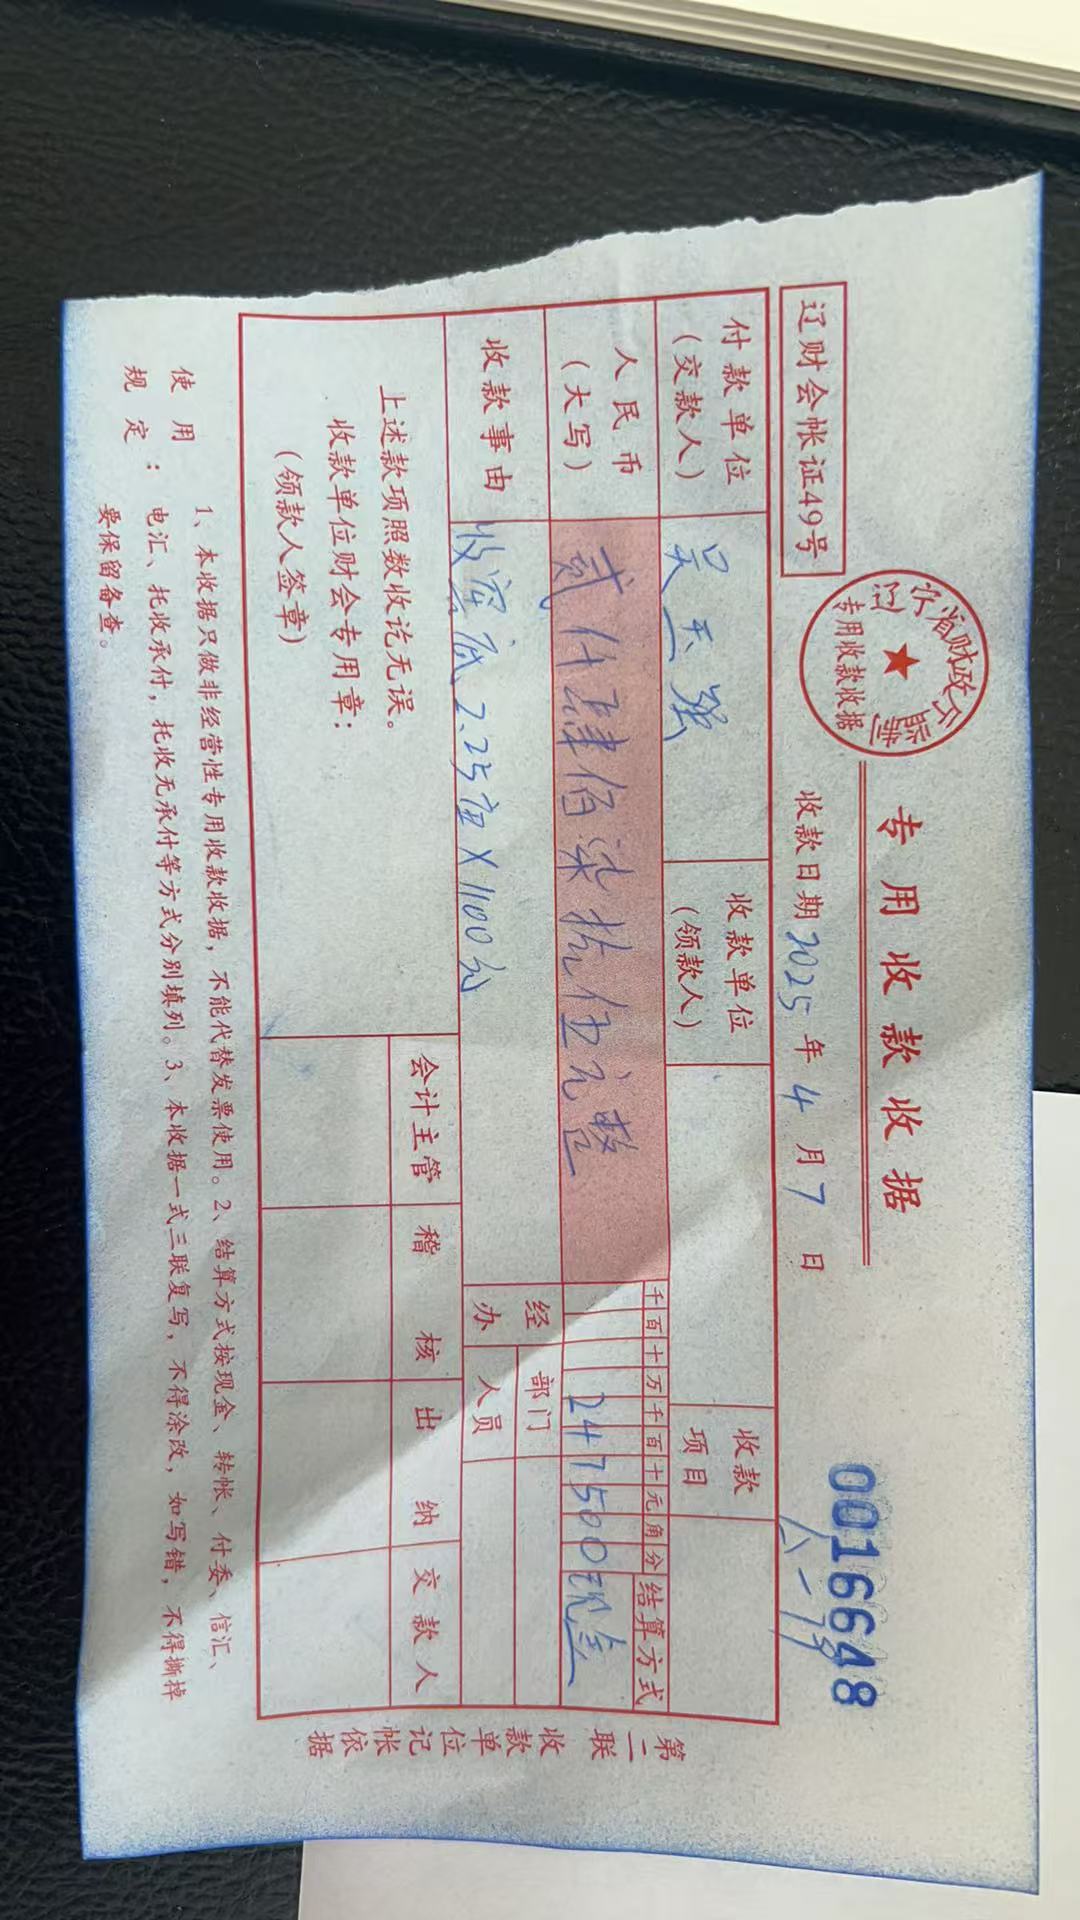 专用收款收据
0016648
辽宁省财政厅
监制
专用收款收据
辽财会帐证49号
收款日期 2025 年 4 月 7 日
付款单位
(交款人)
吴玉强
收款单位
(领款人)
收款
项目
人民币
(大写)
贰仟肆佰柒拾伍元整
千百十万千百十元角分
247500
结算方式
现金
收款事由
2.25亩×1100
经办
部门
人员
上述款项照数收讫无误。
收款单位财会专用章:
(领款人签章)
会计主管
稽核
出纳
交款人
第二联收款单位记帐依据
使用
规定:
1、本收据只做非经营性专用收款收据,不能代替发票使用。2、结算方式按现金、转帐、付委、信汇、
电汇、托收承付,托收无承付等方式分别填列。3、本收据一式三联复写,不得涂改,如写错,不得撕掉
要保留备查。